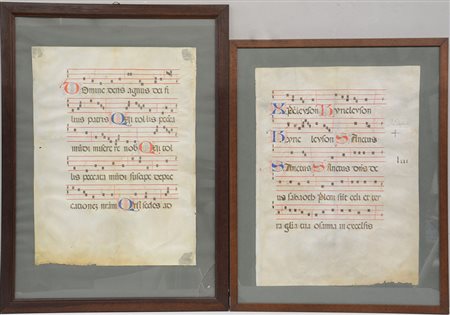 Domine deus agnus dei fi
lius patris Qui tollis pecca
mūdi misere re nob Qui tol
lis peccata mūdi suscipe depre
cationez nr̄am Qui sedes ad
Xpeleyson Kyrieleyson
Kyrie leyson Sanctus
Sanctus Sanctus dn̄s de
us sabaoth Pleni sūt celi et ter
ra gl̄ia tua osanna in excelsis